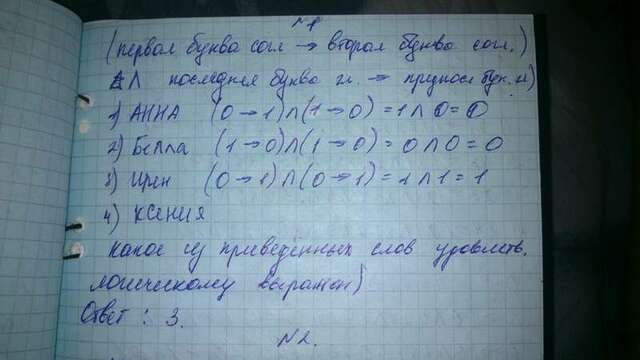 №1
(первая буква согл → вторая буква согл.)
Λ последняя буква гл. → предпосл бук. гл)
1) АННА (0→1)∧(1→0) = 1∧0 = 0
2) Белла (1→0)∧(1→0) = 0∧0 = 0
3) Ирен (0→1)∧(0→1) = 1∧1 = 1
4) КСЕНИЯ
какое из приведённых слов удовлетв.
логическому выражен)
Ответ : 3.
№2.